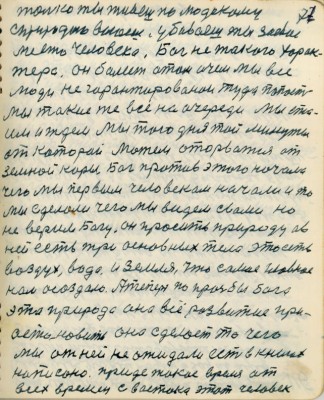 только ты живеш по людскому
строишь убиваеш ты злое
место человека, Бог не такого харак-
тера, он болеет о том о чем мы все
люди не гарантированы туда попасть
мы такие же все на очереди мы сто-
им и ждем мы того дня той минуты
от которой можем оторватся от
земной коры, Бог против этого начала
чего мы первым человеком начали и то
мы сделали чего мы видем свами но
не верим Богу, он просить природу а в
ней есть три основных тела это есть
воздух, вода, и земля, что самое главное
нам создало. А теперь по прозьбы Бога
эта природа она всё развитие при-
остановить она сделает то чего
мы от ней не ожидали есть в книгах
написано. приде такое время от
всех времен с востока этот человек